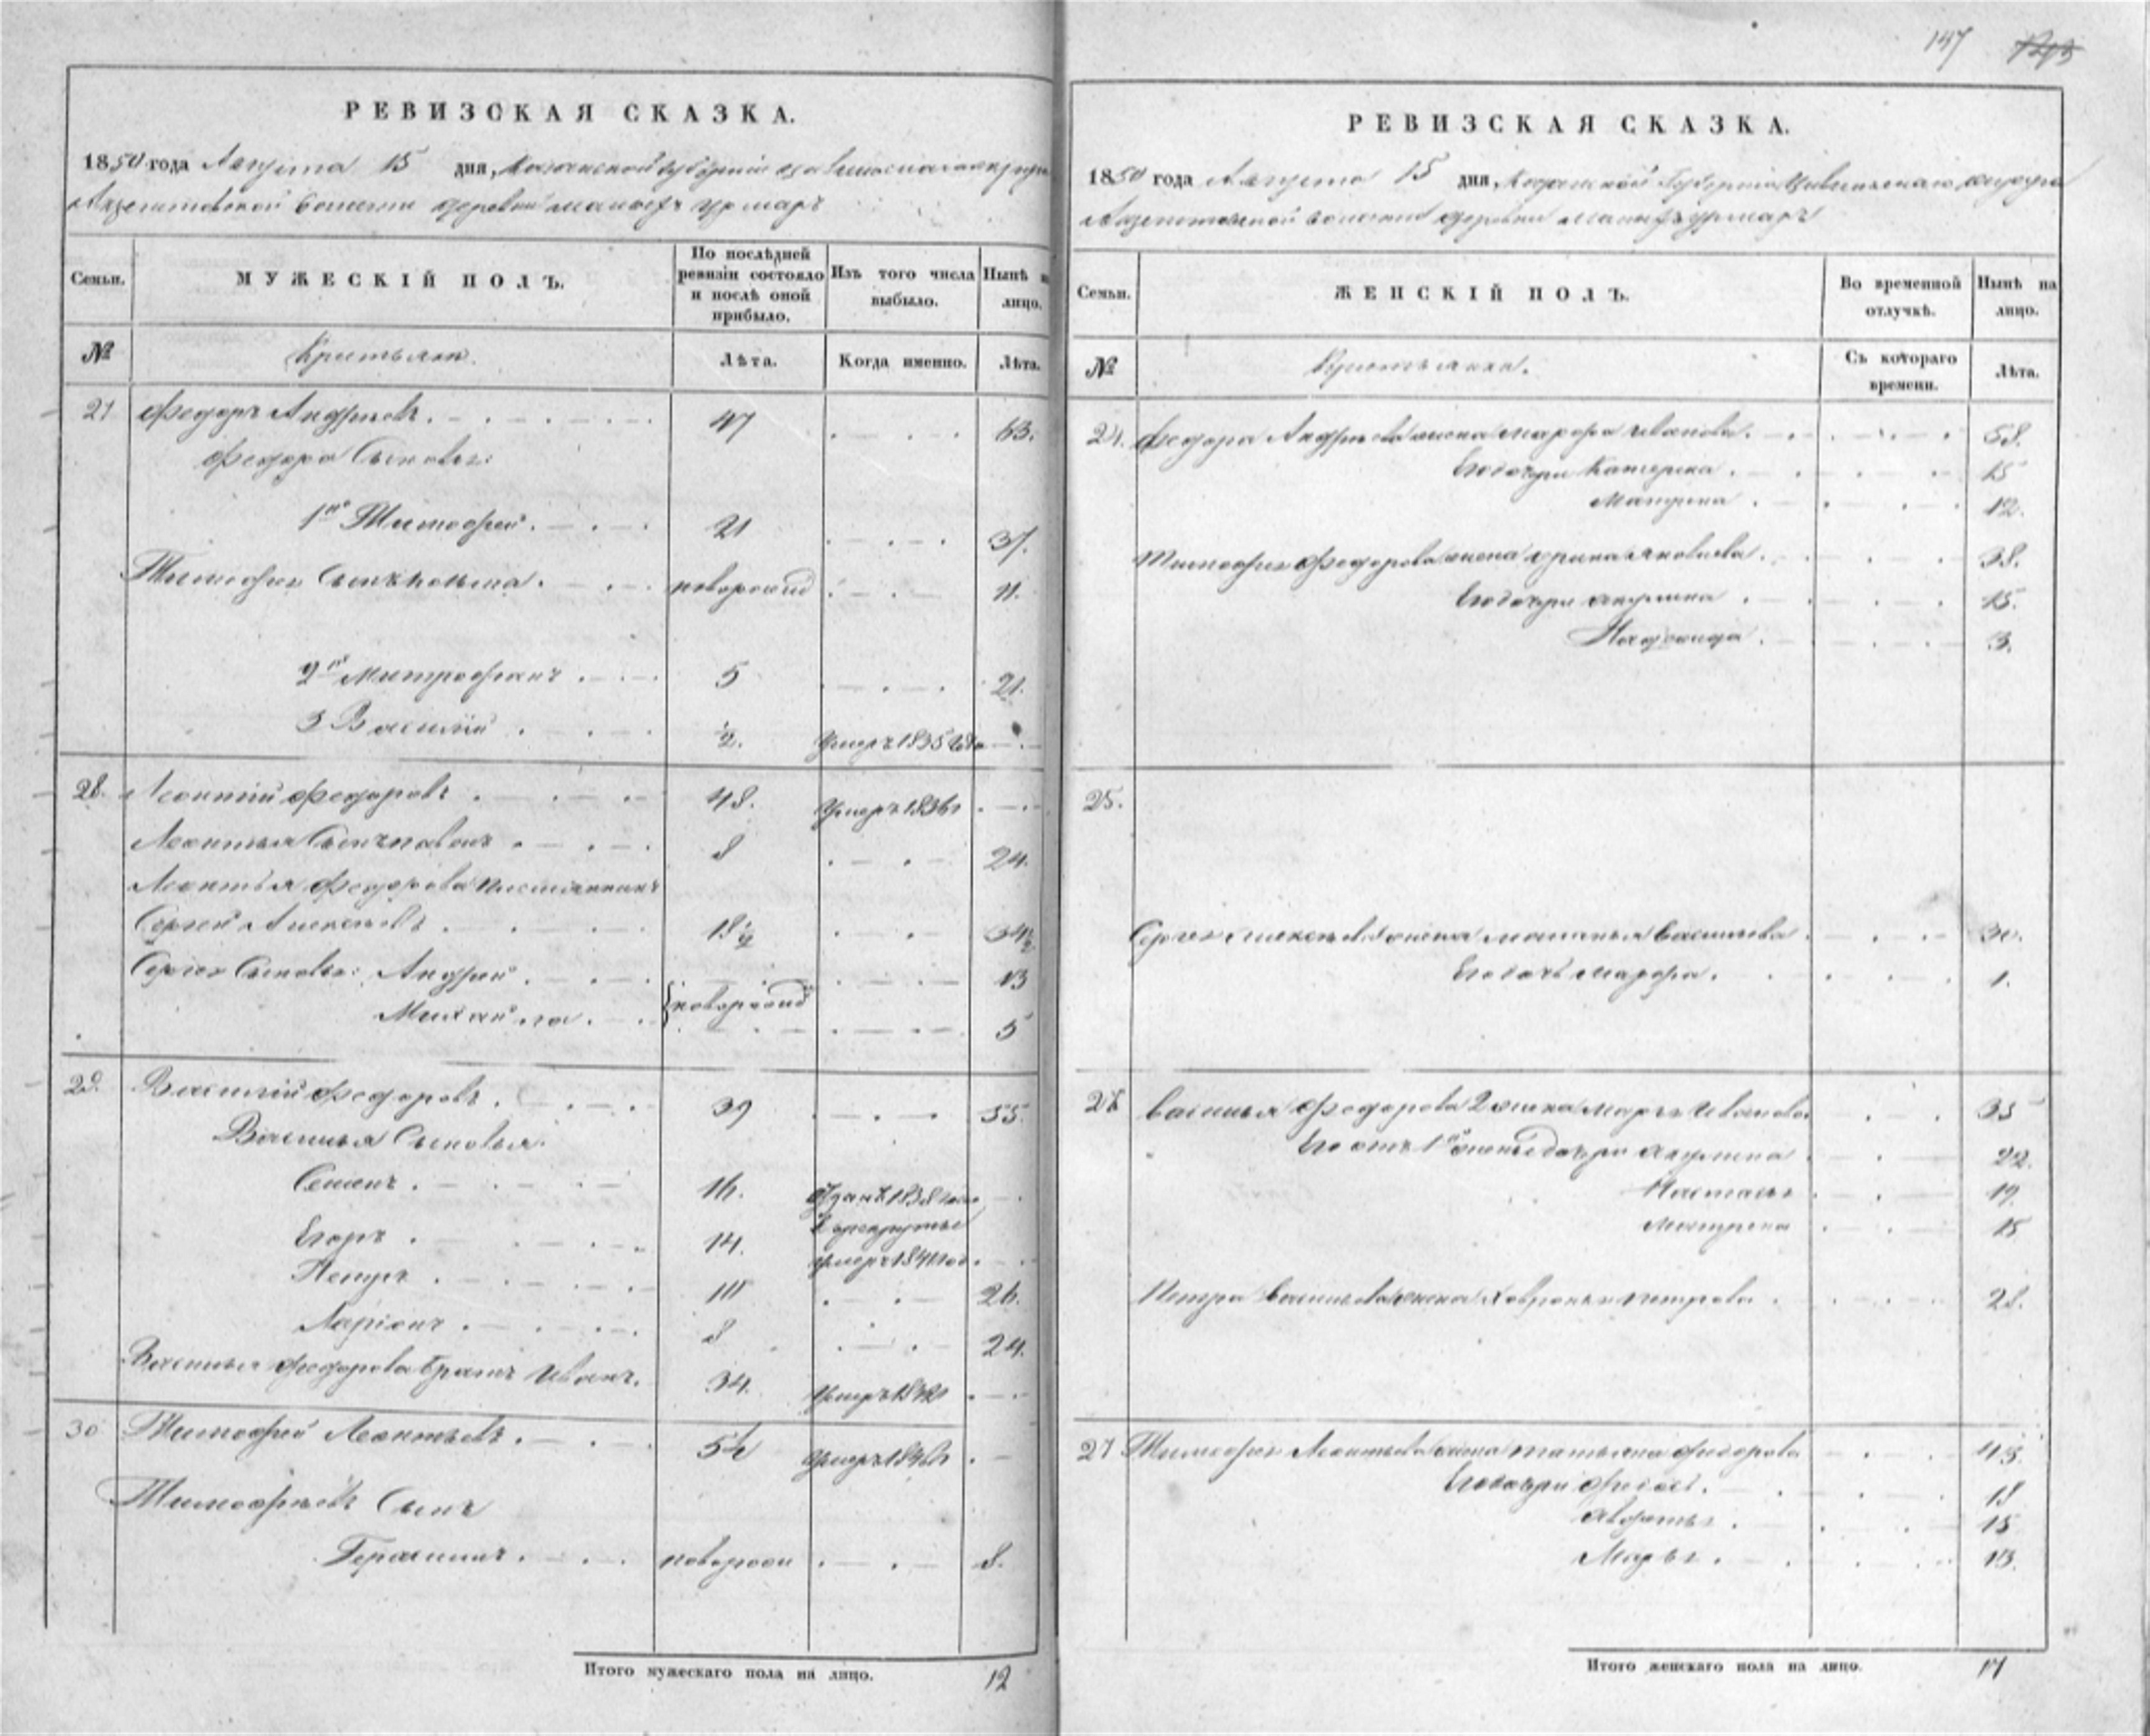 147
РЕВИЗСКАЯ СКАЗКА.
1850 года Августа 15 дня, Казанской губерніи Цивильскаго округа
волости деревни Малыхъ Урмаръ
Семьи. МУЖЕСКІЙ ПОЛЪ. По послѣдней ревизіи состояло и послѣ оной прибыло. Изъ того числа выбыло. Нынѣ на лицо.
№ Крестьяне. Лѣта. Когда именно. Лѣта.
27 Федоръ Андреевъ. 47 63.
Федора Сыновья:
1й Тимофей. 21 37.
Тимофея Сынъ новорожд 11.
2й Митрофанъ 5 21.
3 Василій ½. Умеръ 1835 года
28. Леонтій Федоровъ 48. Умеръ 1836г
Леонтья Сынъ 8 24.
Леонтья Федорова племянникъ
Сергей Алексѣевъ 18½ 34½
Сергея Сыновья: Андрей 13
новорожд
Михайла 5
29. Василій Федоровъ. 39 55.
Василья Сыновья.
Семенъ. 16. Отданъ 1838 года
в рекруты
Егоръ 14. умеръ 1841 год.
Петръ 10 26.
Ларіонъ 8 24.
Василья Федорова братъ Иванъ. 34. Умеръ
30 Тимофей Леонтьевъ. Умеръ 1846г
Тимофѣевъ Сынъ
Герасимъ. новорож 8.
Итого мужескаго пола на лицо. 12
РЕВИЗСКАЯ СКАЗКА.
1850 года Августа 15 дня, Казанской Губерніи Цивильскаго округа
волости деревни Малыхъ Урмаръ
Семьи. ЖЕНСКІЙ ПОЛЪ. Во временной отлучкѣ. Нынѣ на лицо.
№ Крестьянки. Съ котораго времени. Лѣта.
27. Федора Андреева жена Марфа Иванова. 58.
Его дочери Катерина 15
Матрена 12.
Тимофея Федорова жена Ирина Яковлева. 38.
Его дочери Акулина 15.
3.
Сергея Алексѣева жена Маланья Васильева 30.
Его дочь Марфа. 1.
Василья Федорова 2 жена Марья Иванова 35
Его отъ 1й жены дочери Акулина 22.
Настасья 19.
Матрена 15
Петра Васильева жена Хавронья Петрова 28.
Тимофея Леонтьева жена Татьяна Федорова 43.
Его дочери 18
Авдотья 15
Марья. 13.
Итого женскаго пола на лицо. 17